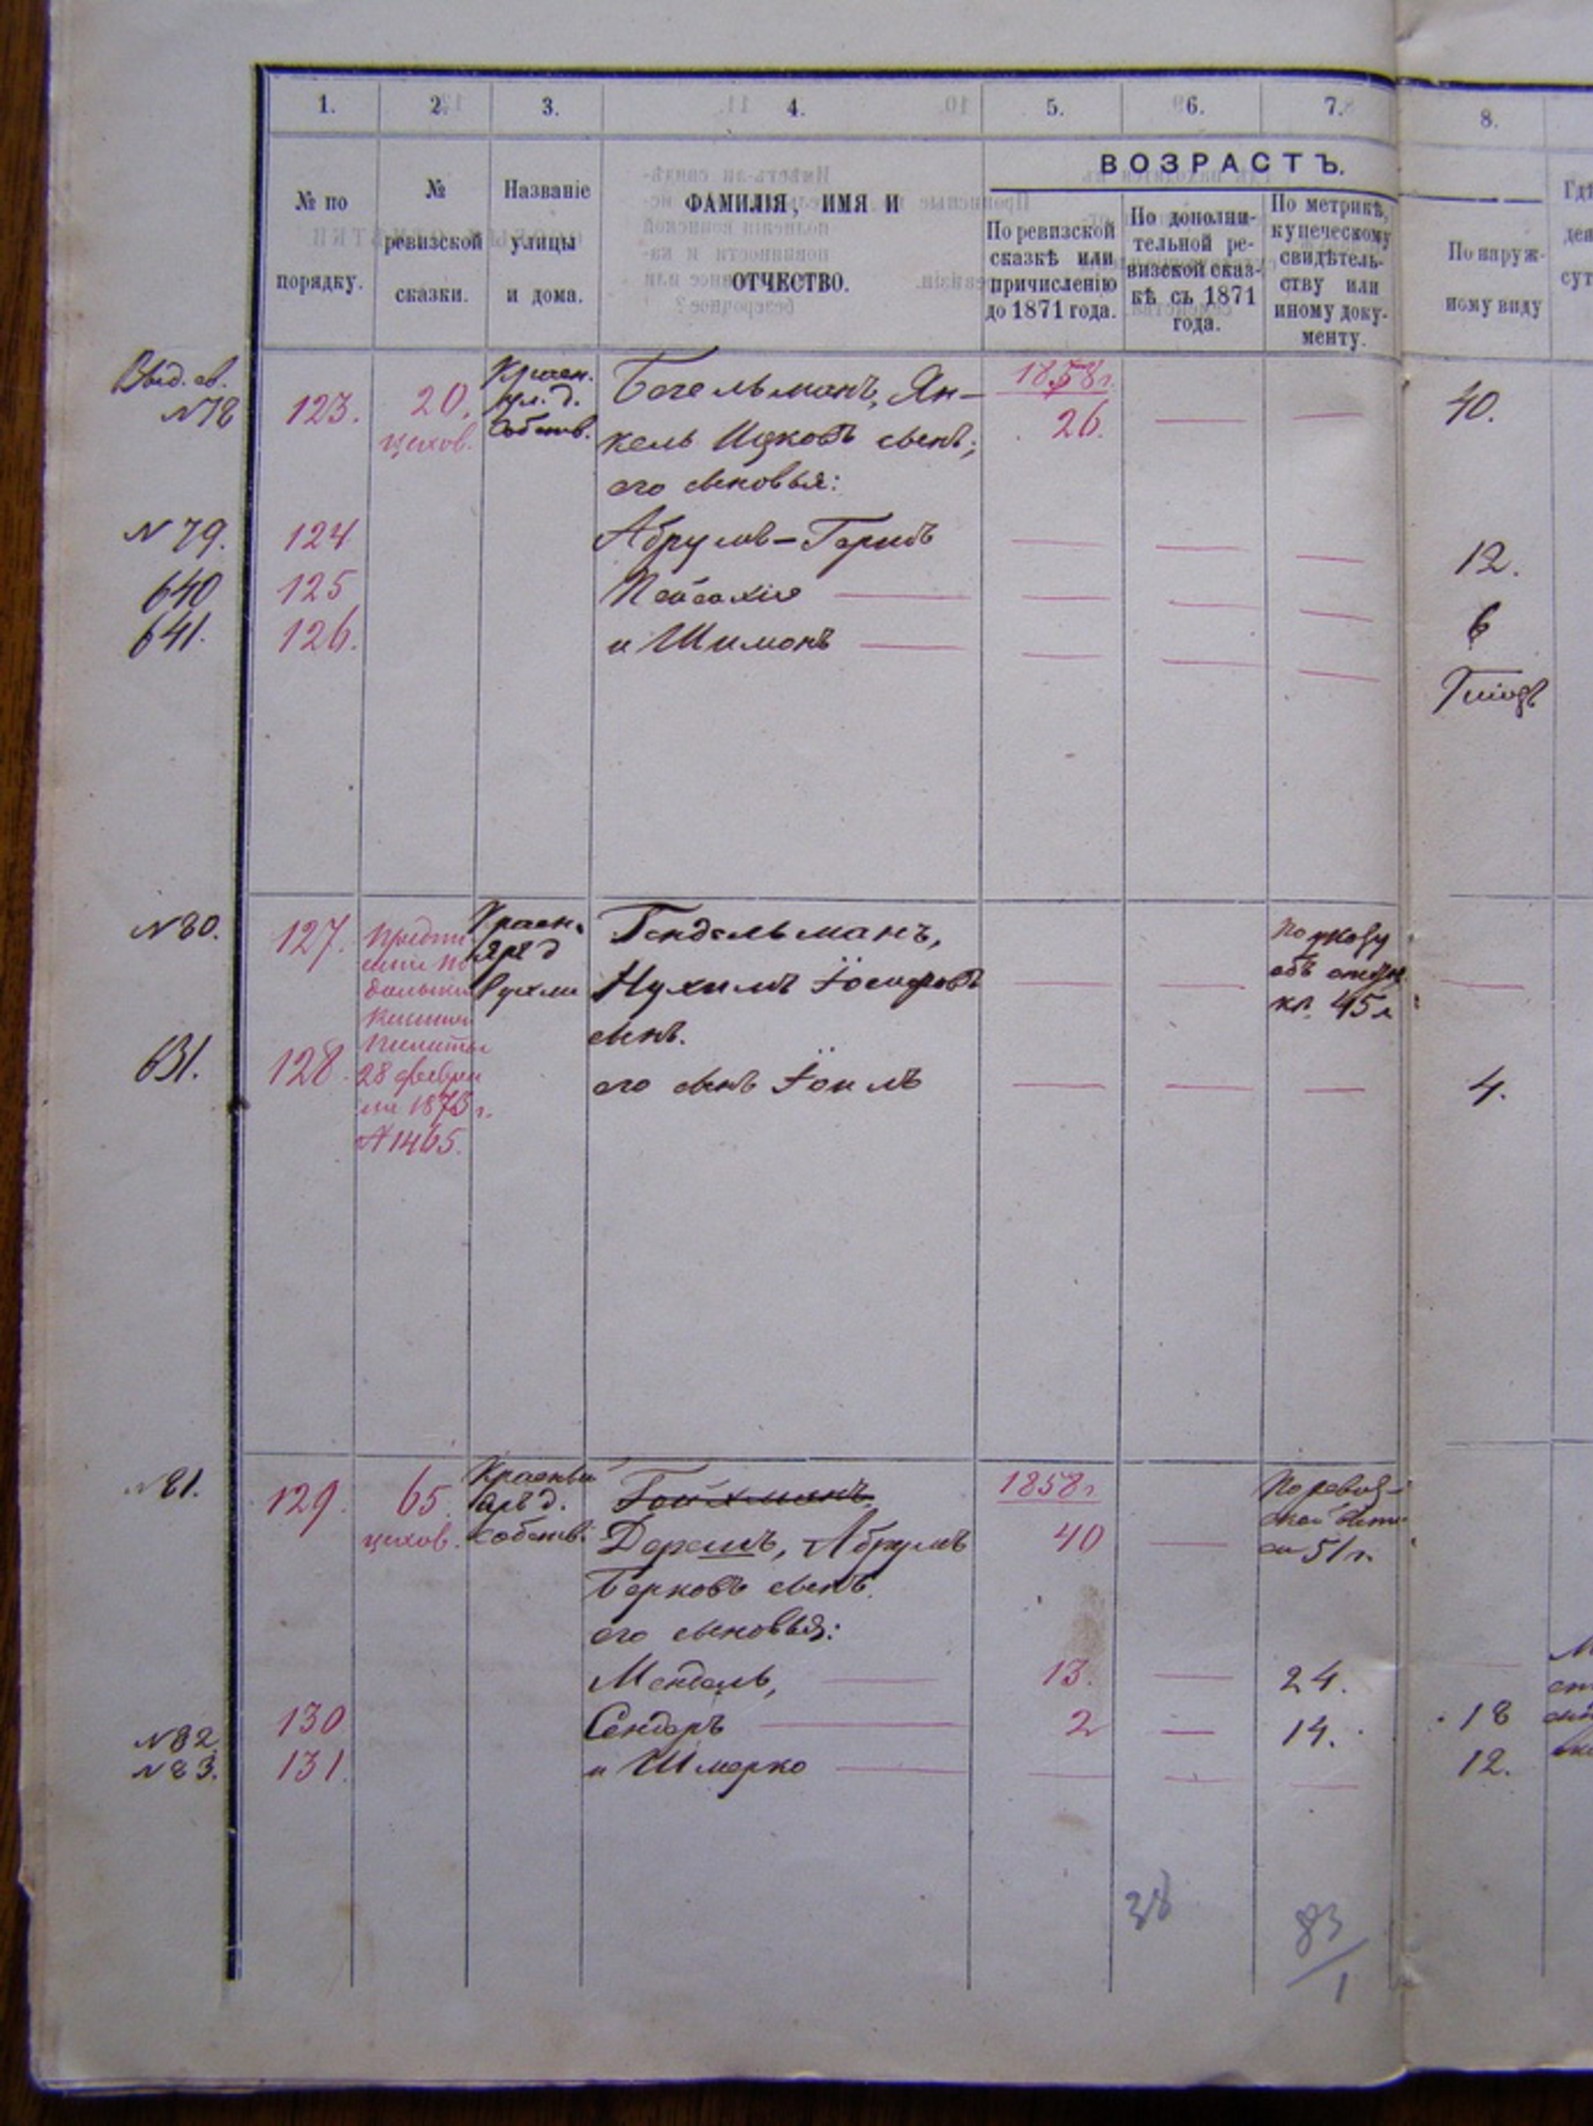 1. 2. 3. 4. 5. 6. 7. 8.
№ по порядку.
№ ревизской сказки.
Названіе улицы и дома.
ФАМИЛІЯ, ИМЯ И
ОТЧЕСТВО.
ВОЗРАСТЪ.
По ревизской
сказкѣ или
причисленію
до 1871 года.
По дополни-
тельной ре-
визской сказ-
кѣ съ 1871
года.
По метрикѣ,
купеческому
свидѣтель-
ству или
иному доку-
менту.
По наруж-
ному виду
Выд. св.
№78 123. 20, цехов.
Красн.
ул. д.
собств.
Бегельманъ, Ян-
кель Ицковъ сынъ;
его сыновья:
1858 г.
26. — — 40.
№79. 124 Абрумъ-Гершъ — — — 12.
640 125 Пейсахіе — — — — 6
641. 126. и Шимонъ — — — —
№80. 127.
28 февра
ля 1873 г.
№1465.
Красн.
яръ д
Гендельманъ,
Нухимъ Іосифовъ
сынъ.
— — —
кл. 45 л
631. 128. его сынъ Іоилъ — — — 4.
№81. 129. 65. цехов.
Красный
яръ д.
собств.
Гойхманъ
Дерешъ, Абрумъ
Берковъ сынъ.
его сыновья:
1858 г
40 —
По ревиз-
ской
51 г.
Мендель, — 13. — 24. —
№82 130 Сендеръ — 2 — 14. 18
№83. 131. и Шмерко — — — — 12.
38
83
1